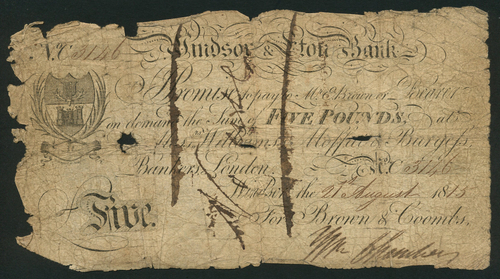 No. 3146 Windsor & Eton Bank
I Promise to pay to Mr. E. Brown or Bearer
on demand the Sum of FIVE POUNDS, at
Williams, Moffat & Burgess,
Bankers, London. No. 3146
Windsor the 21 August 1815
Five. For Brown & Coombs.